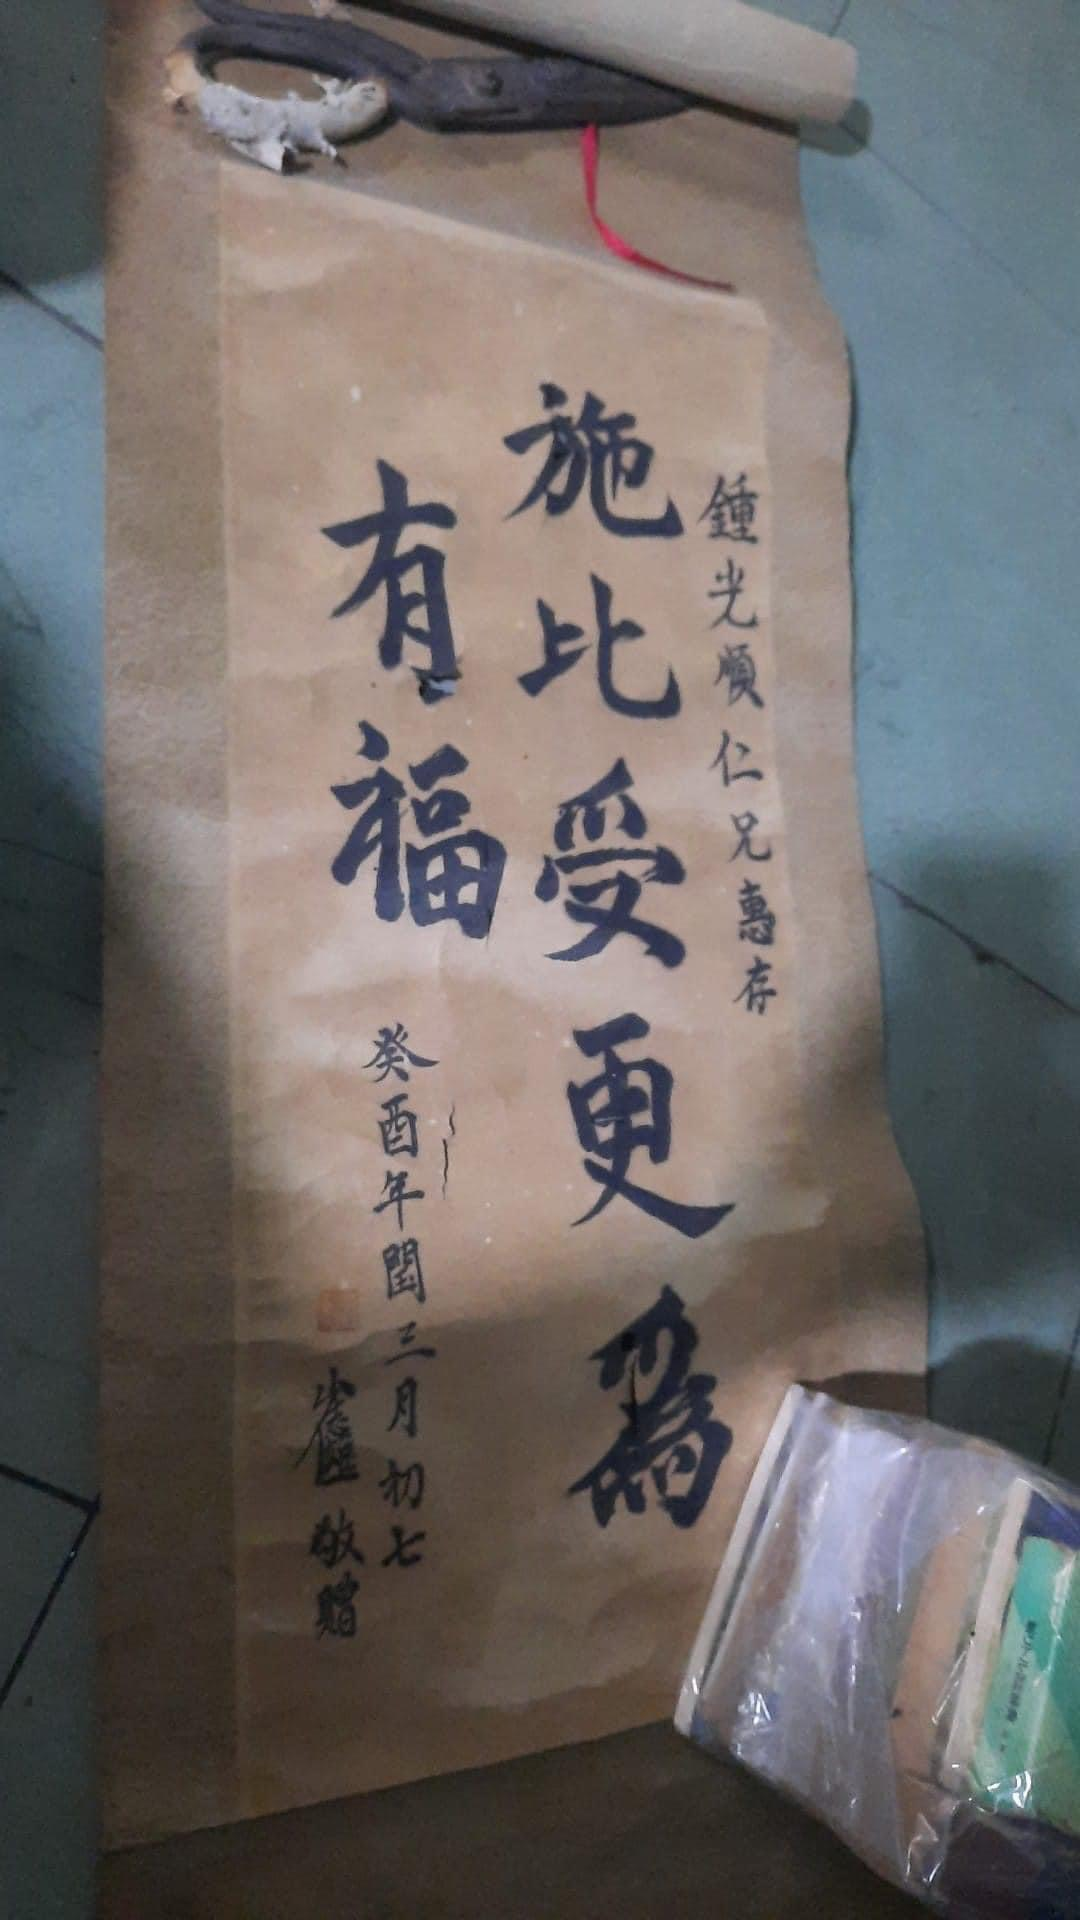 鍾光順仁兄惠存
施比受更為
有福
癸酉年閏三月初七
敬贈